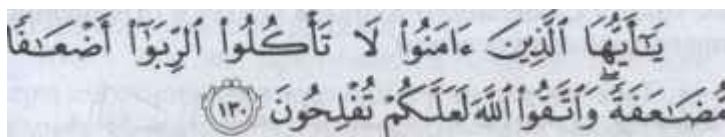 يَٰٓأَيُّهَا ٱلَّذِينَ ءَامَنُوا۟ لَا تَأْكُلُوا۟ ٱلرِّبَوٰٓا۟ أَضْعَٰفًا
مُّضَٰعَفَةً ۖ وَٱتَّقُوا۟ ٱللَّهَ لَعَلَّكُمْ تُفْلِحُونَ ١٣٠